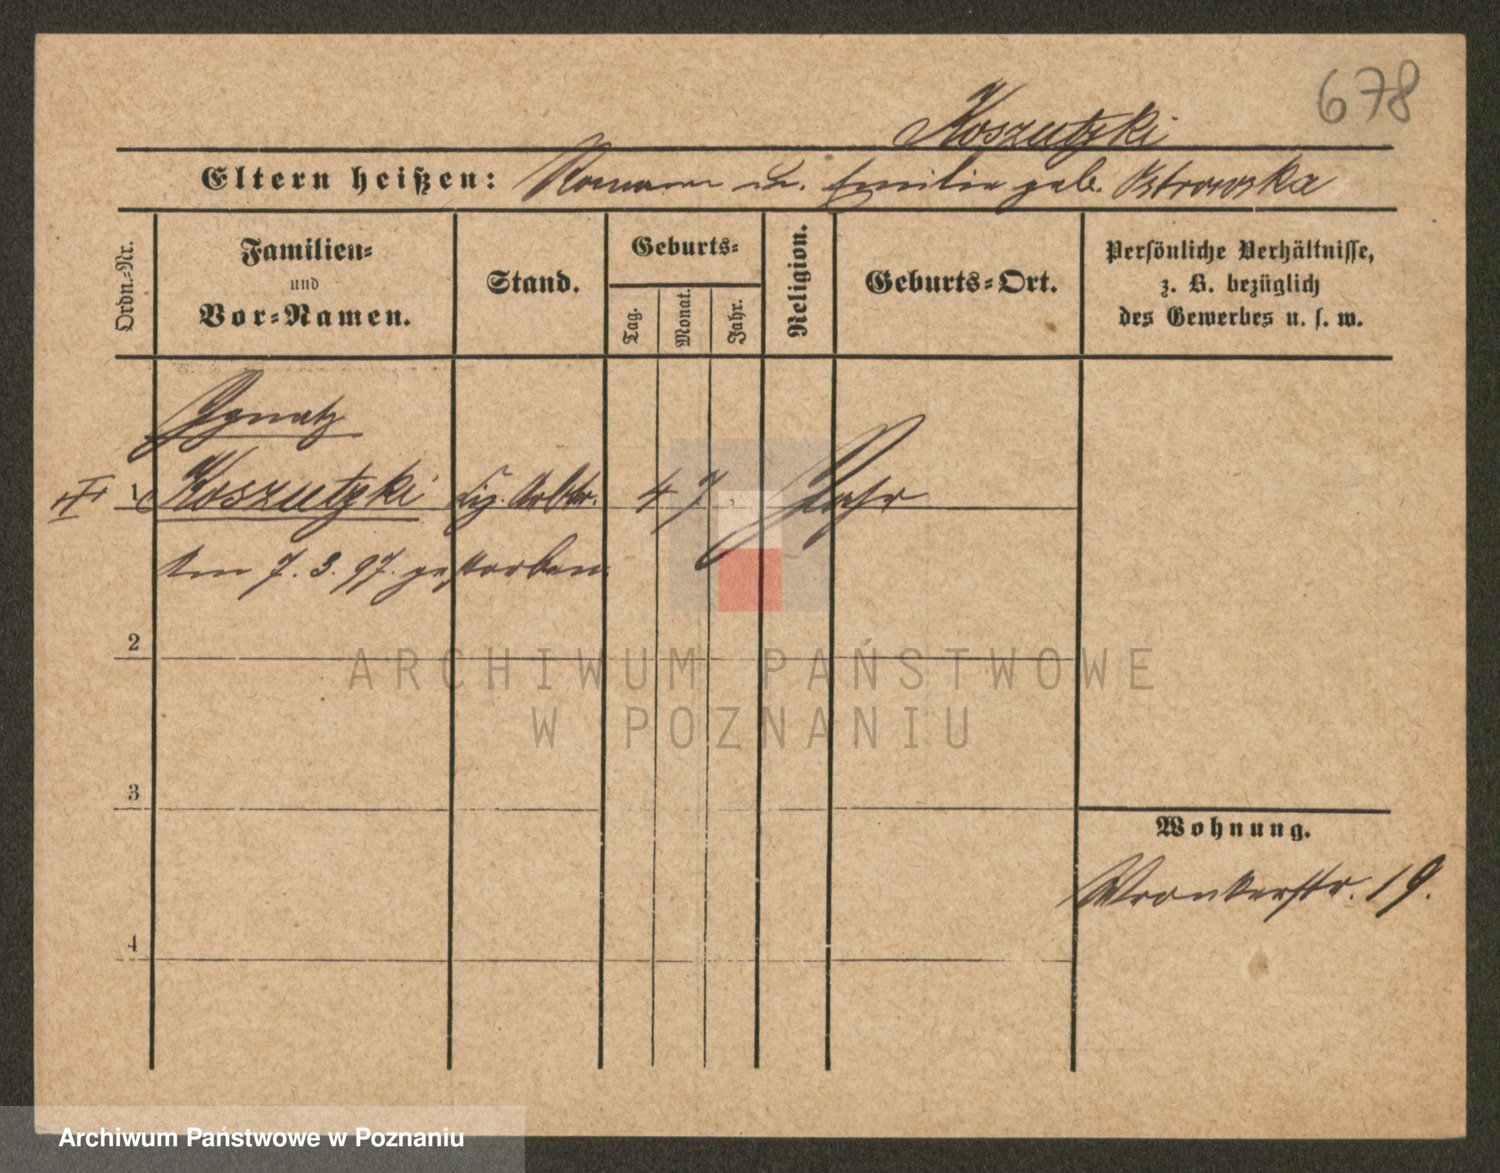 678
Koszutzki
Eltern heißen: Roman u. Emilie geb. Ostrowska
Ordn.-Nr.
Familien- und Vor-Namen.
Stand.
Geburts-
Tag.
Monat.
Jahr.
Religion.
Geburts-Ort.
Persönliche Verhältnisse,
z. B. bezüglich
des Gewerbes u. s. w.
Ignatz
III 1 Koszutzki Cig. Arbtr. 47 Jahr
Am 7. 3. 97. gestorben.
2
3
4
Wohnung.
Wronkerstr. 19.
ARCHIWUM PAŃSTWOWE
W POZNANIU
Archiwum Państwowe w Poznaniu